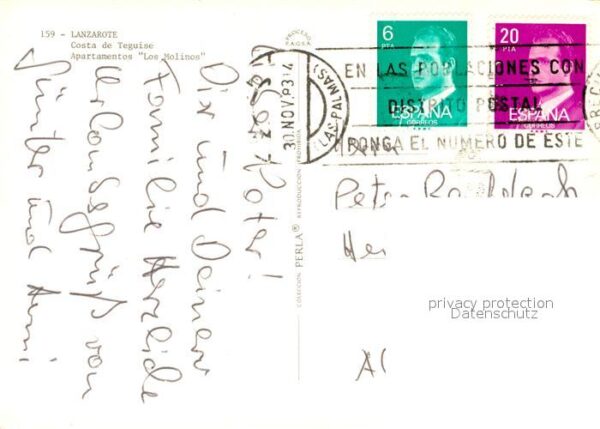 159 - LANZAROTE
Costa de Teguise
Apartamentos "Los Molinos"
6
PTA
ESPAÑA
CORREOS
20
PTA
ESPAÑA
CORREOS
30 NOV. 83
(LAS PALMAS)
EN LAS POBLACIONES CON
DISTRITO POSTAL
PONGA EL NUMERO DE ESTE
COLECCION PERLA® REPRODUCCION PROHIBIDA
Lieber Peter!
Dir und Deiner
Familie Herzliche
Urlaubsgrüße von
Günter und
Peter
Her
privacy protection
Datenschutz